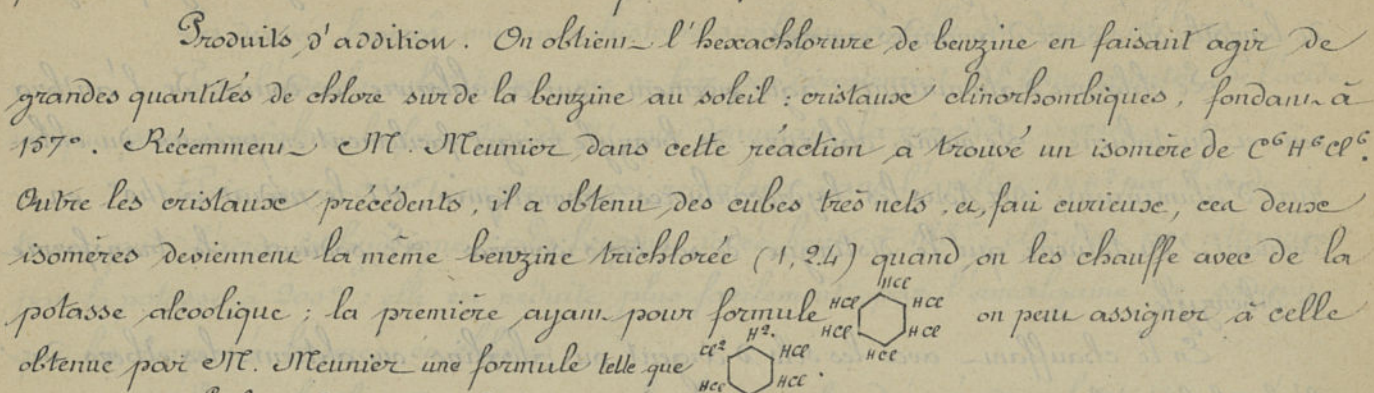 Produits d'addition. On obtient l'hexachlorure de benzine en faisant agir de
grandes quantités de chlore sur de la benzine au soleil : cristaux clinorhombiques, fondant à
157°. Récemment M. Meunier dans cette réaction a trouvé un isomère de C⁶H⁶Cl⁶.
Outre les cristaux précédents, il a obtenu des cubes très nets, et, fait curieux, ces deux
isomères deviennent la même benzine trichlorée (1, 2.4) quand on les chauffe avec de la
potasse alcoolique ; la première ayant pour formule HCl HCl HCl HCl HCl HCl on peut assigner à celle
obtenue par M. Meunier une formule telle que Cl² H². HCl HCl HCl .